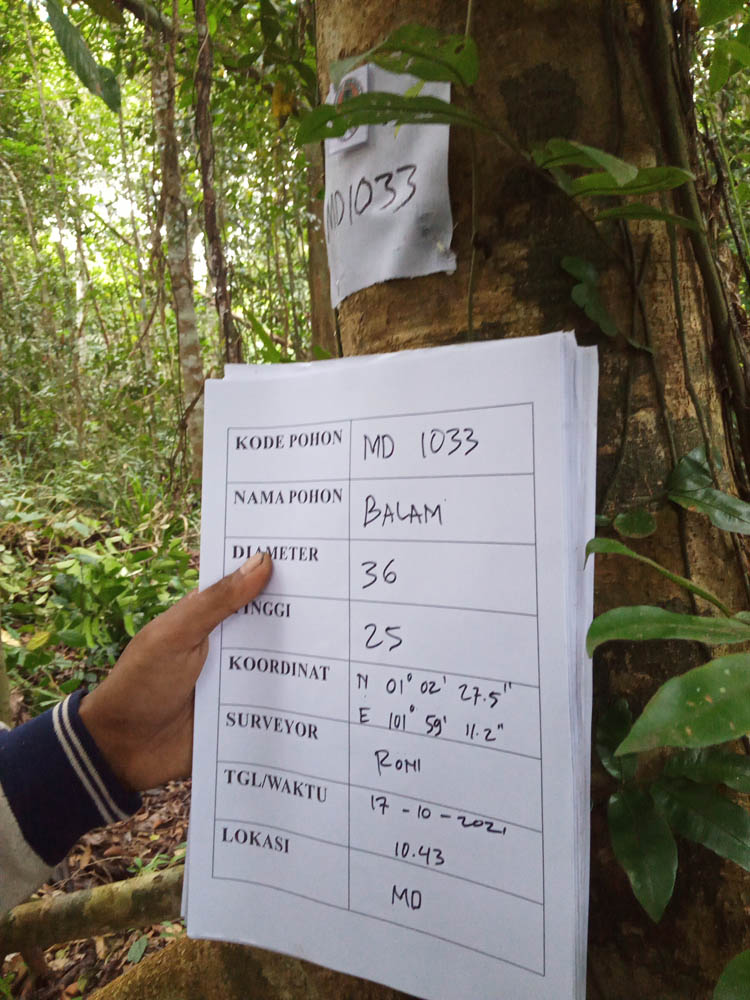 MD1033
KODE POHON MD 1033
NAMA POHON BALAM
DIAMETER 36
TINGGI 25
KOORDINAT N 01° 02' 27.5"
E 101° 59' 11.2"
SURVEYOR ROMI
TGL/WAKTU 17 - 10 - 2021
10.43
LOKASI MD